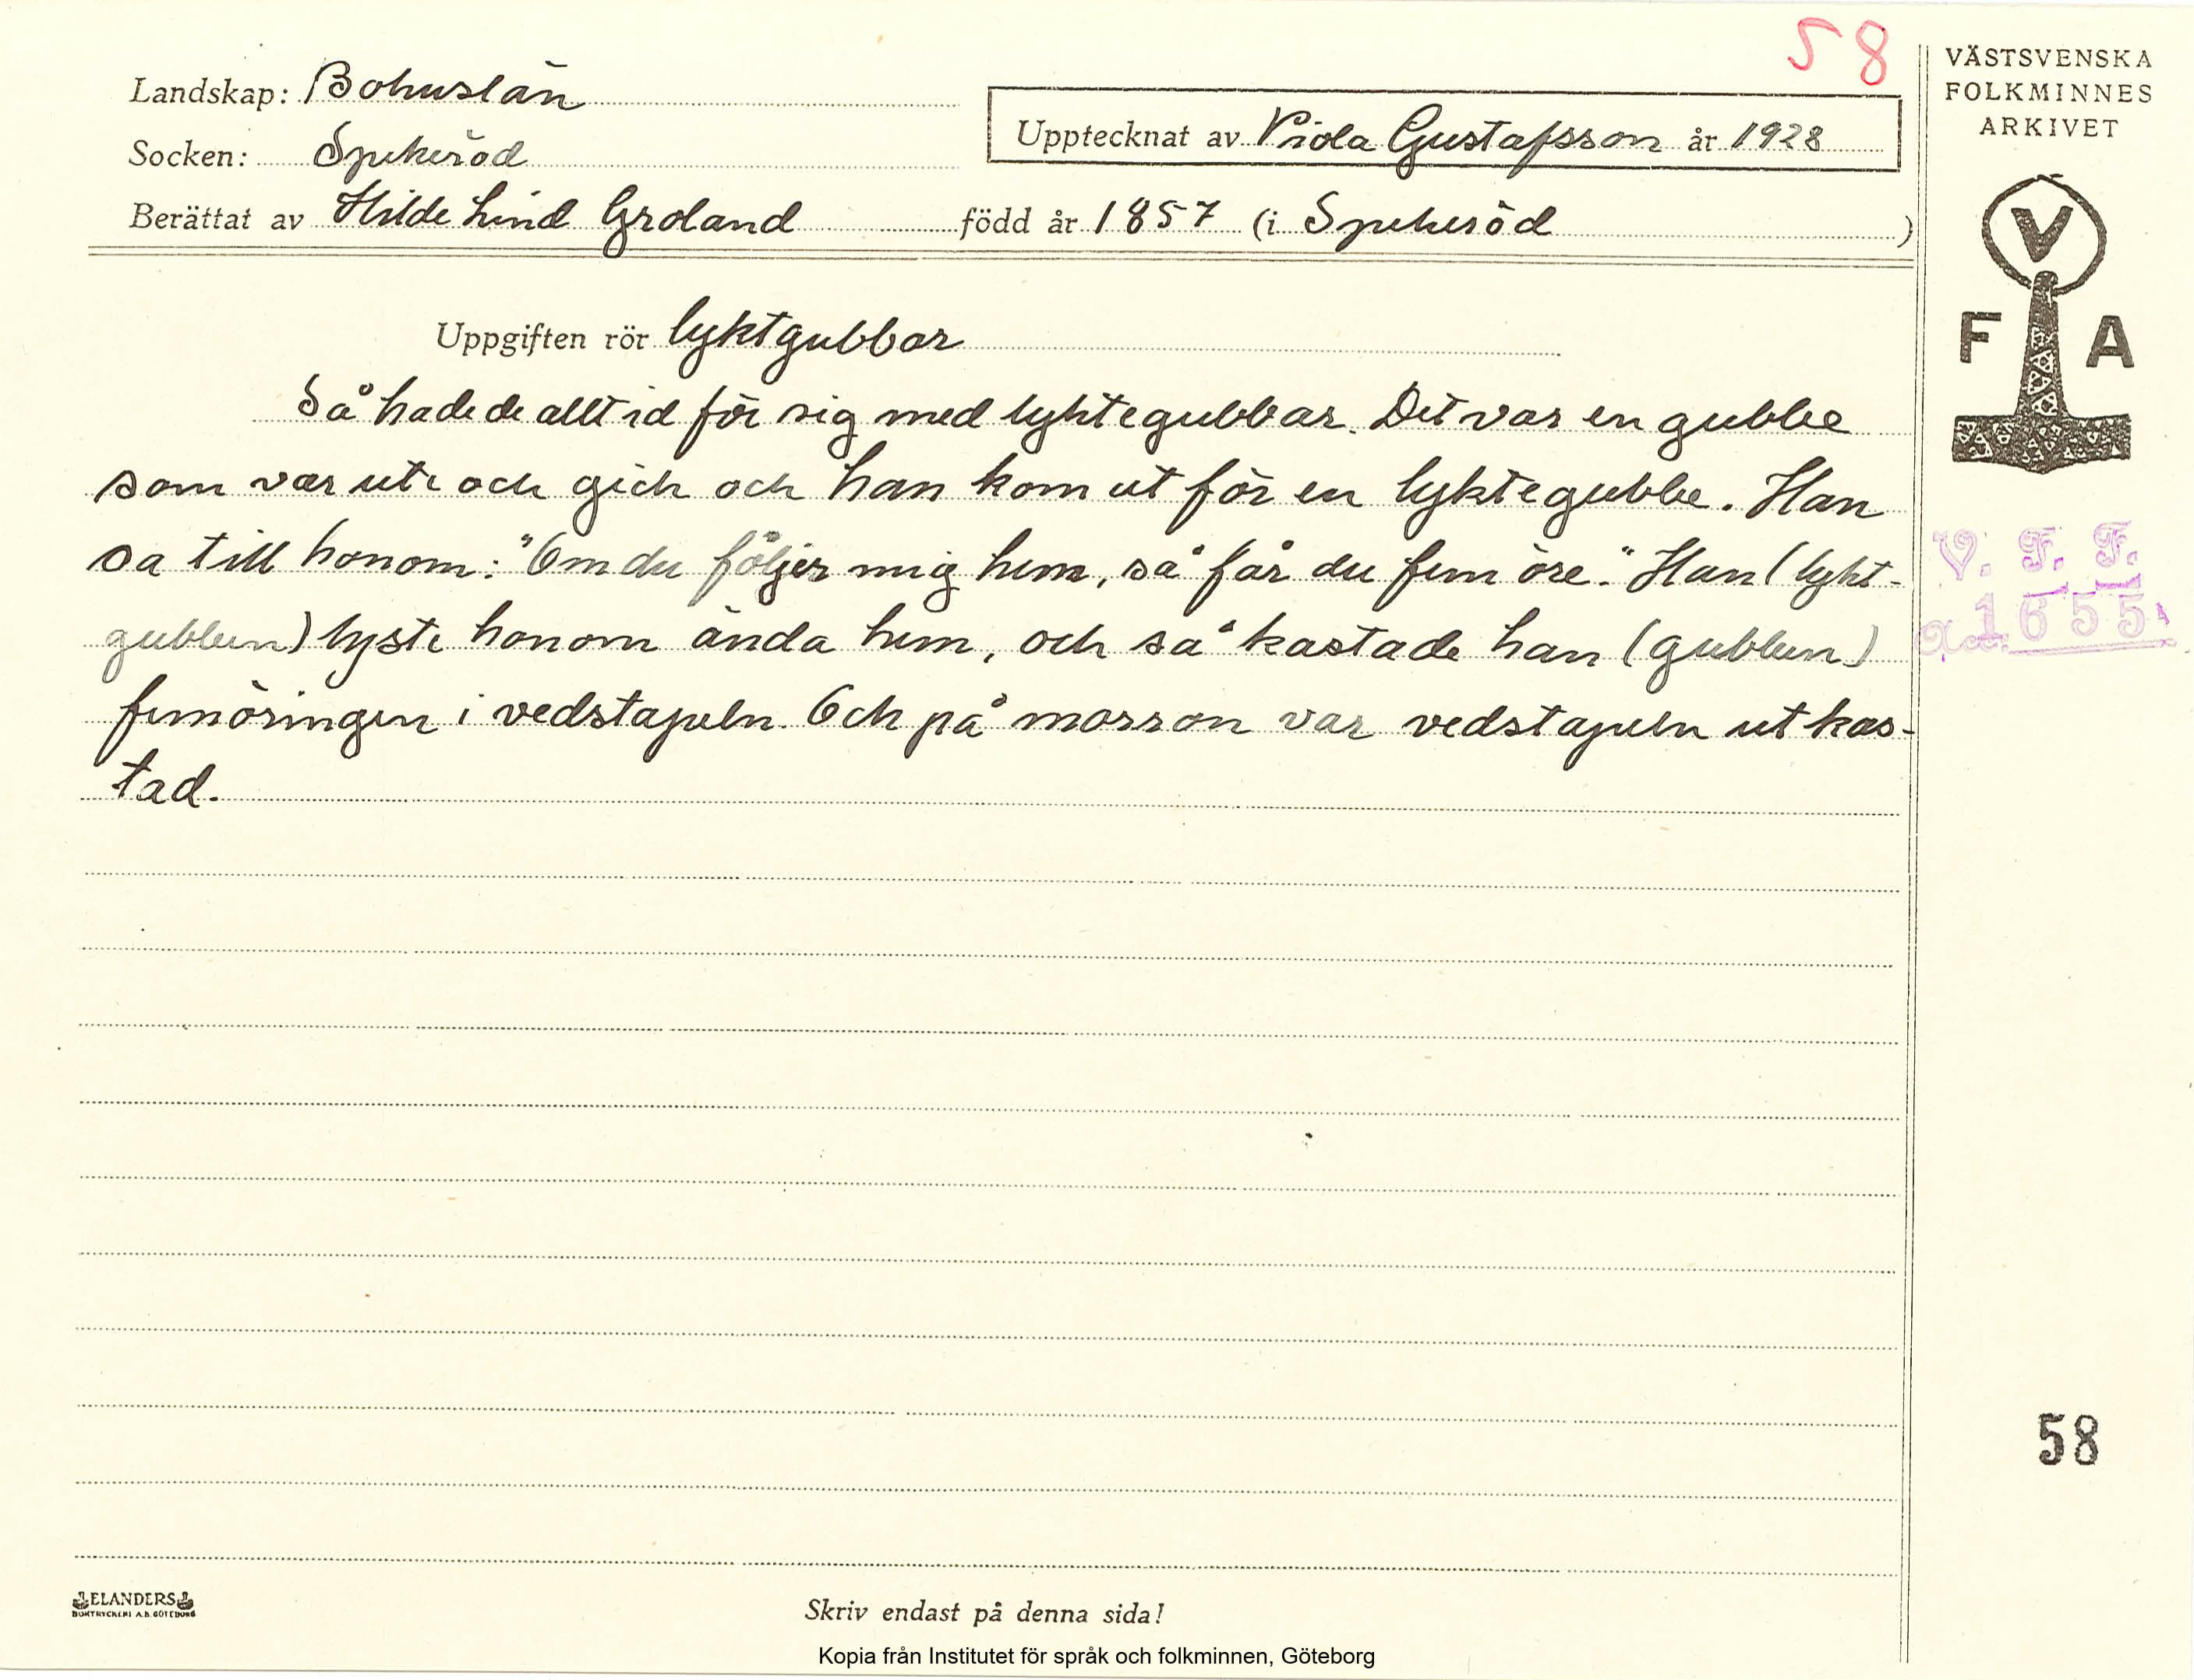 58
Landskap: Bohuslän
Socken: Spekeröd
Upptecknat av Viola Gustafsson år 1928
Berättat av Hilde Lind Groland född år 1857 (i Spekeröd )
VÄSTSVENSKA
FOLKMINNES
ARKIVET
V
F A
Uppgiften rör lyktgubbar
Så hade de alltid för sig med lyktegubbar. Det var en gubbe
som var ute och gick och han kom ut för en lyktegubbe. Han
sa till honom: "Om du följer mig hem, så får du fem öre." Han (lykt-
gubben) lyste honom ända hem, och så kastade han (gubben)
femöringen i vedstapeln. Och på morron var vedstapeln utkas-
tad.
V. F. F.
1655
58
ELANDERS
BOKTRYCKERI A.B. GÖTEBORG
Skriv endast på denna sida!
Kopia från Institutet för språk och folkminnen, Göteborg